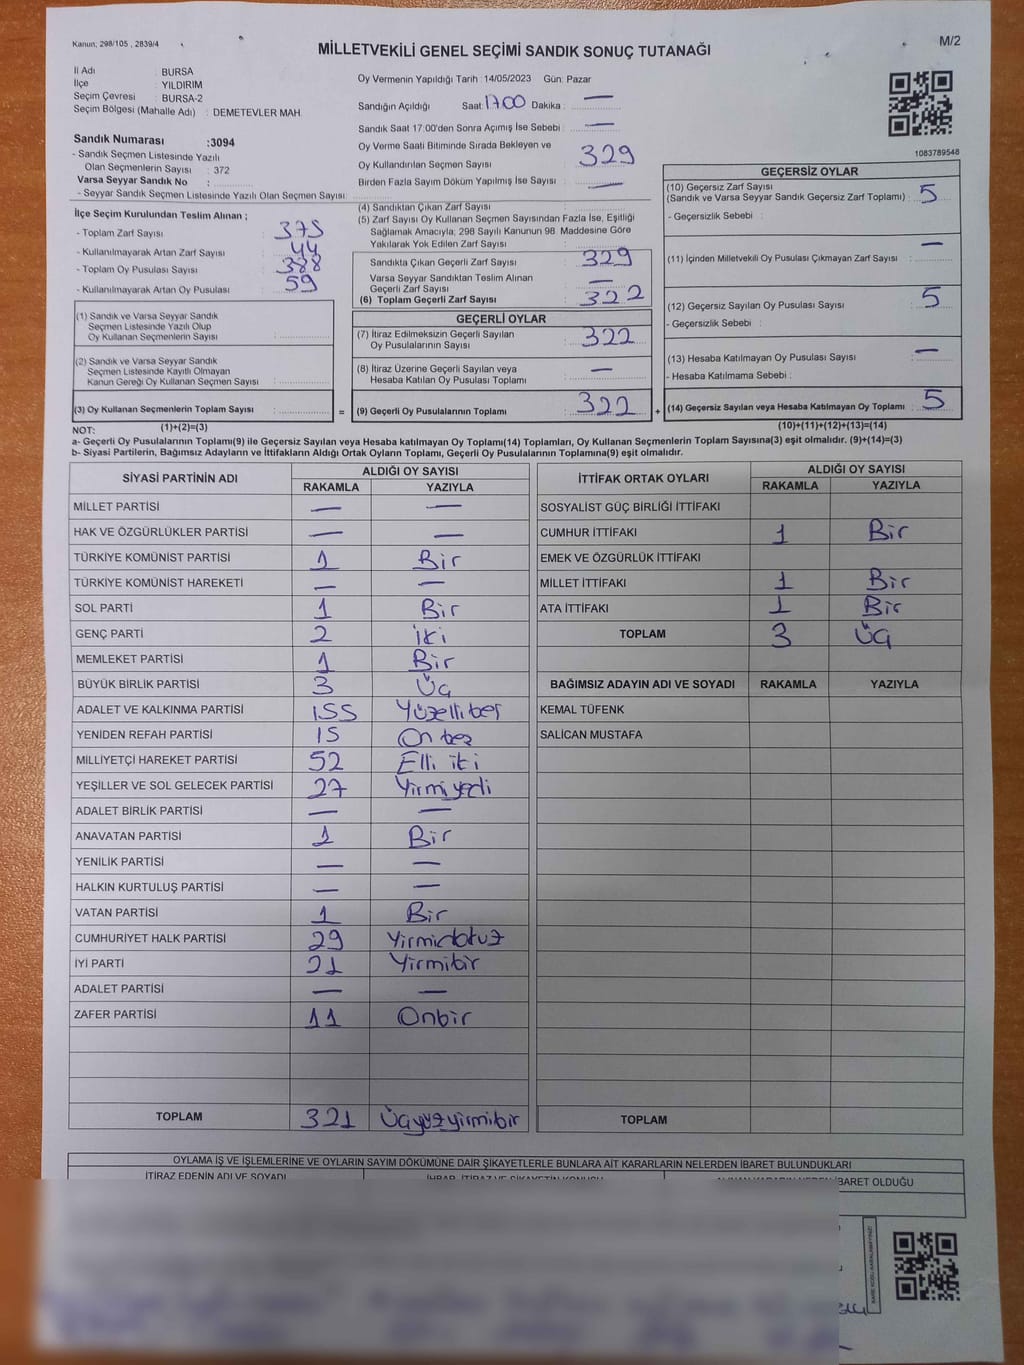 Kanun; 298/105 , 2839/4
M/2
MİLLETVEKİLİ GENEL SEÇİMİ SANDIK SONUÇ TUTANAĞI
İl Adı : BURSA
İlçe : YILDIRIM
Seçim Çevresi : BURSA-2
Seçim Bölgesi (Mahalle Adı) : DEMETEVLER MAH
Sandık Numarası :3094
- Sandık Seçmen Listesinde Yazılı
Olan Seçmenlerin Sayısı : 372
Varsa Seyyar Sandık No :
- Seyyar Sandık Seçmen Listesinde Yazılı Olan Seçmen Sayısı:
Oy Vermenin Yapıldığı Tarih :14/05/2023 Gün: Pazar
Sandığın Açıldığı Saat: 1700 Dakika : —
Sandık Saat 17:00'den Sonra Açımış İse Sebebi : —
Oy Verme Saati Bitiminde Sırada Bekleyen ve
Oy Kullandırılan Seçmen Sayısı : 329
Birden Fazla Sayım Döküm Yapılmış İse Sayısı : —
1083789548
İlçe Seçim Kurulundan Teslim Alınan ;
- Toplam Zarf Sayısı : 375
- Kullanılmayarak Artan Zarf Sayısı : 44
- Toplam Oy Pusulası Sayısı : 388
- Kullanılmayarak Artan Oy Pusulası : 59
(1) Sandık ve Varsa Seyyar Sandık
Seçmen Listesinde Yazılı Olup
Oy Kullanan Seçmenlerin Sayısı :
(2) Sandık ve Varsa Seyyar Sandık
Seçmen Listesinde Kayıtlı Olmayan
Kanun Gereği Oy Kullanan Seçmen Sayısı :
(3) Oy Kullanan Seçmenlerin Toplam Sayısı :
=
(4) Sandıktan Çıkan Zarf Sayısı :
(5) Zarf Sayısı Oy Kullanan Seçmen Sayısından Fazla İse, Eşitliği
Sağlamak Amacıyla; 298 Sayılı Kanunun 98. Maddesine Göre
Yakılarak Yok Edilen Zarf Sayısı :
Sandıkta Çıkan Geçerli Zarf Sayısı : 329
Varsa Seyyar Sandıktan Teslim Alınan
Geçerli Zarf Sayısı : —
(6) Toplam Geçerli Zarf Sayısı : 322
GEÇERLİ OYLAR
(7) İtiraz Edilmeksizin Geçerli Sayılan
Oy Pusulalarının Sayısı : 322
(8) İtiraz Üzerine Geçerli Sayılan veya
Hesaba Katılan Oy Pusulası Toplamı : —
(9) Geçerli Oy Pusulalarının Toplamı : 322
+
GEÇERSİZ OYLAR
(10) Geçersiz Zarf Sayısı
(Sandık ve Varsa Seyyar Sandık Geçersiz Zarf Toplamı) : 5
- Geçersizlik Sebebi :
(11) İçinden Milletvekili Oy Pusulası Çıkmayan Zarf Sayısı : —
(12) Geçersiz Sayılan Oy Pusulası Sayısı : 5
- Geçersizlik Sebebi :
(13) Hesaba Katılmayan Oy Pusulası Sayısı : —
- Hesaba Katılmama Sebebi :
(14) Geçersiz Sayılan veya Hesaba Katılmayan Oy Toplamı : 5
NOT: (1)+(2)=(3)
(10)+(11)+(12)+(13)=(14)
a- Geçerli Oy Pusulalarının Toplamı(9) ile Geçersiz Sayılan veya Hesaba katılmayan Oy Toplamı(14) Toplamları, Oy Kullanan Seçmenlerin Toplam Sayısına(3) eşit olmalıdır. (9)+(14)=(3)
b- Siyasi Partilerin, Bağımsız Adayların ve İttifakların Aldığı Ortak Oyların Toplamı, Geçerli Oy Pusulalarının Toplamına(9) eşit olmalıdır.
SİYASİ PARTİNİN ADI ALDIĞI OY SAYISI
RAKAMLA YAZIYLA
MİLLET PARTİSİ — —
HAK VE ÖZGÜRLÜKLER PARTİSİ — —
TÜRKİYE KOMÜNİST PARTİSİ 1 Bir
TÜRKİYE KOMÜNİST HAREKETİ — —
SOL PARTİ 1 Bir
GENÇ PARTİ 2 iki
MEMLEKET PARTİSİ 1 Bir
BÜYÜK BİRLİK PARTİSİ 3 Üç
ADALET VE KALKINMA PARTİSİ 155 Yüzellibeş
YENİDEN REFAH PARTİSİ 15 On beş
MİLLİYETÇİ HAREKET PARTİSİ 52 Elli iki
YEŞİLLER VE SOL GELECEK PARTİSİ 27 Yirmiyedi
ADALET BİRLİK PARTİSİ — —
ANAVATAN PARTİSİ 1 Bir
YENİLİK PARTİSİ — —
HALKIN KURTULUŞ PARTİSİ — —
VATAN PARTİSİ 1 Bir
CUMHURİYET HALK PARTİSİ 29 Yirmidokuz
İYİ PARTİ 21 Yirmibir
ADALET PARTİSİ — —
ZAFER PARTİSİ 11 Onbir
TOPLAM 321 Üçyüzyirmibir
İTTİFAK ORTAK OYLARI ALDIĞI OY SAYISI
RAKAMLA YAZIYLA
SOSYALİST GÜÇ BİRLİĞİ İTTİFAKI
CUMHUR İTTİFAKI 1 Bir
EMEK VE ÖZGÜRLÜK İTTİFAKI
MİLLET İTTİFAKI 1 Bir
ATA İTTİFAKI 1 Bir
TOPLAM 3 Üç
BAĞIMSIZ ADAYIN ADI VE SOYADI RAKAMLA YAZIYLA
KEMAL TÜFENK
SALİCAN MUSTAFA
TOPLAM
OYLAMA İŞ VE İŞLEMLERİNE VE OYLARIN SAYIM DÖKÜMÜNE DAİR ŞİKAYETLERLE BUNLARA AİT KARARLARIN NELERDEN İBARET BULUNDUKLARI
İTİRAZ EDENİN ADI VE SOYADI
İBARET OLDUĞU